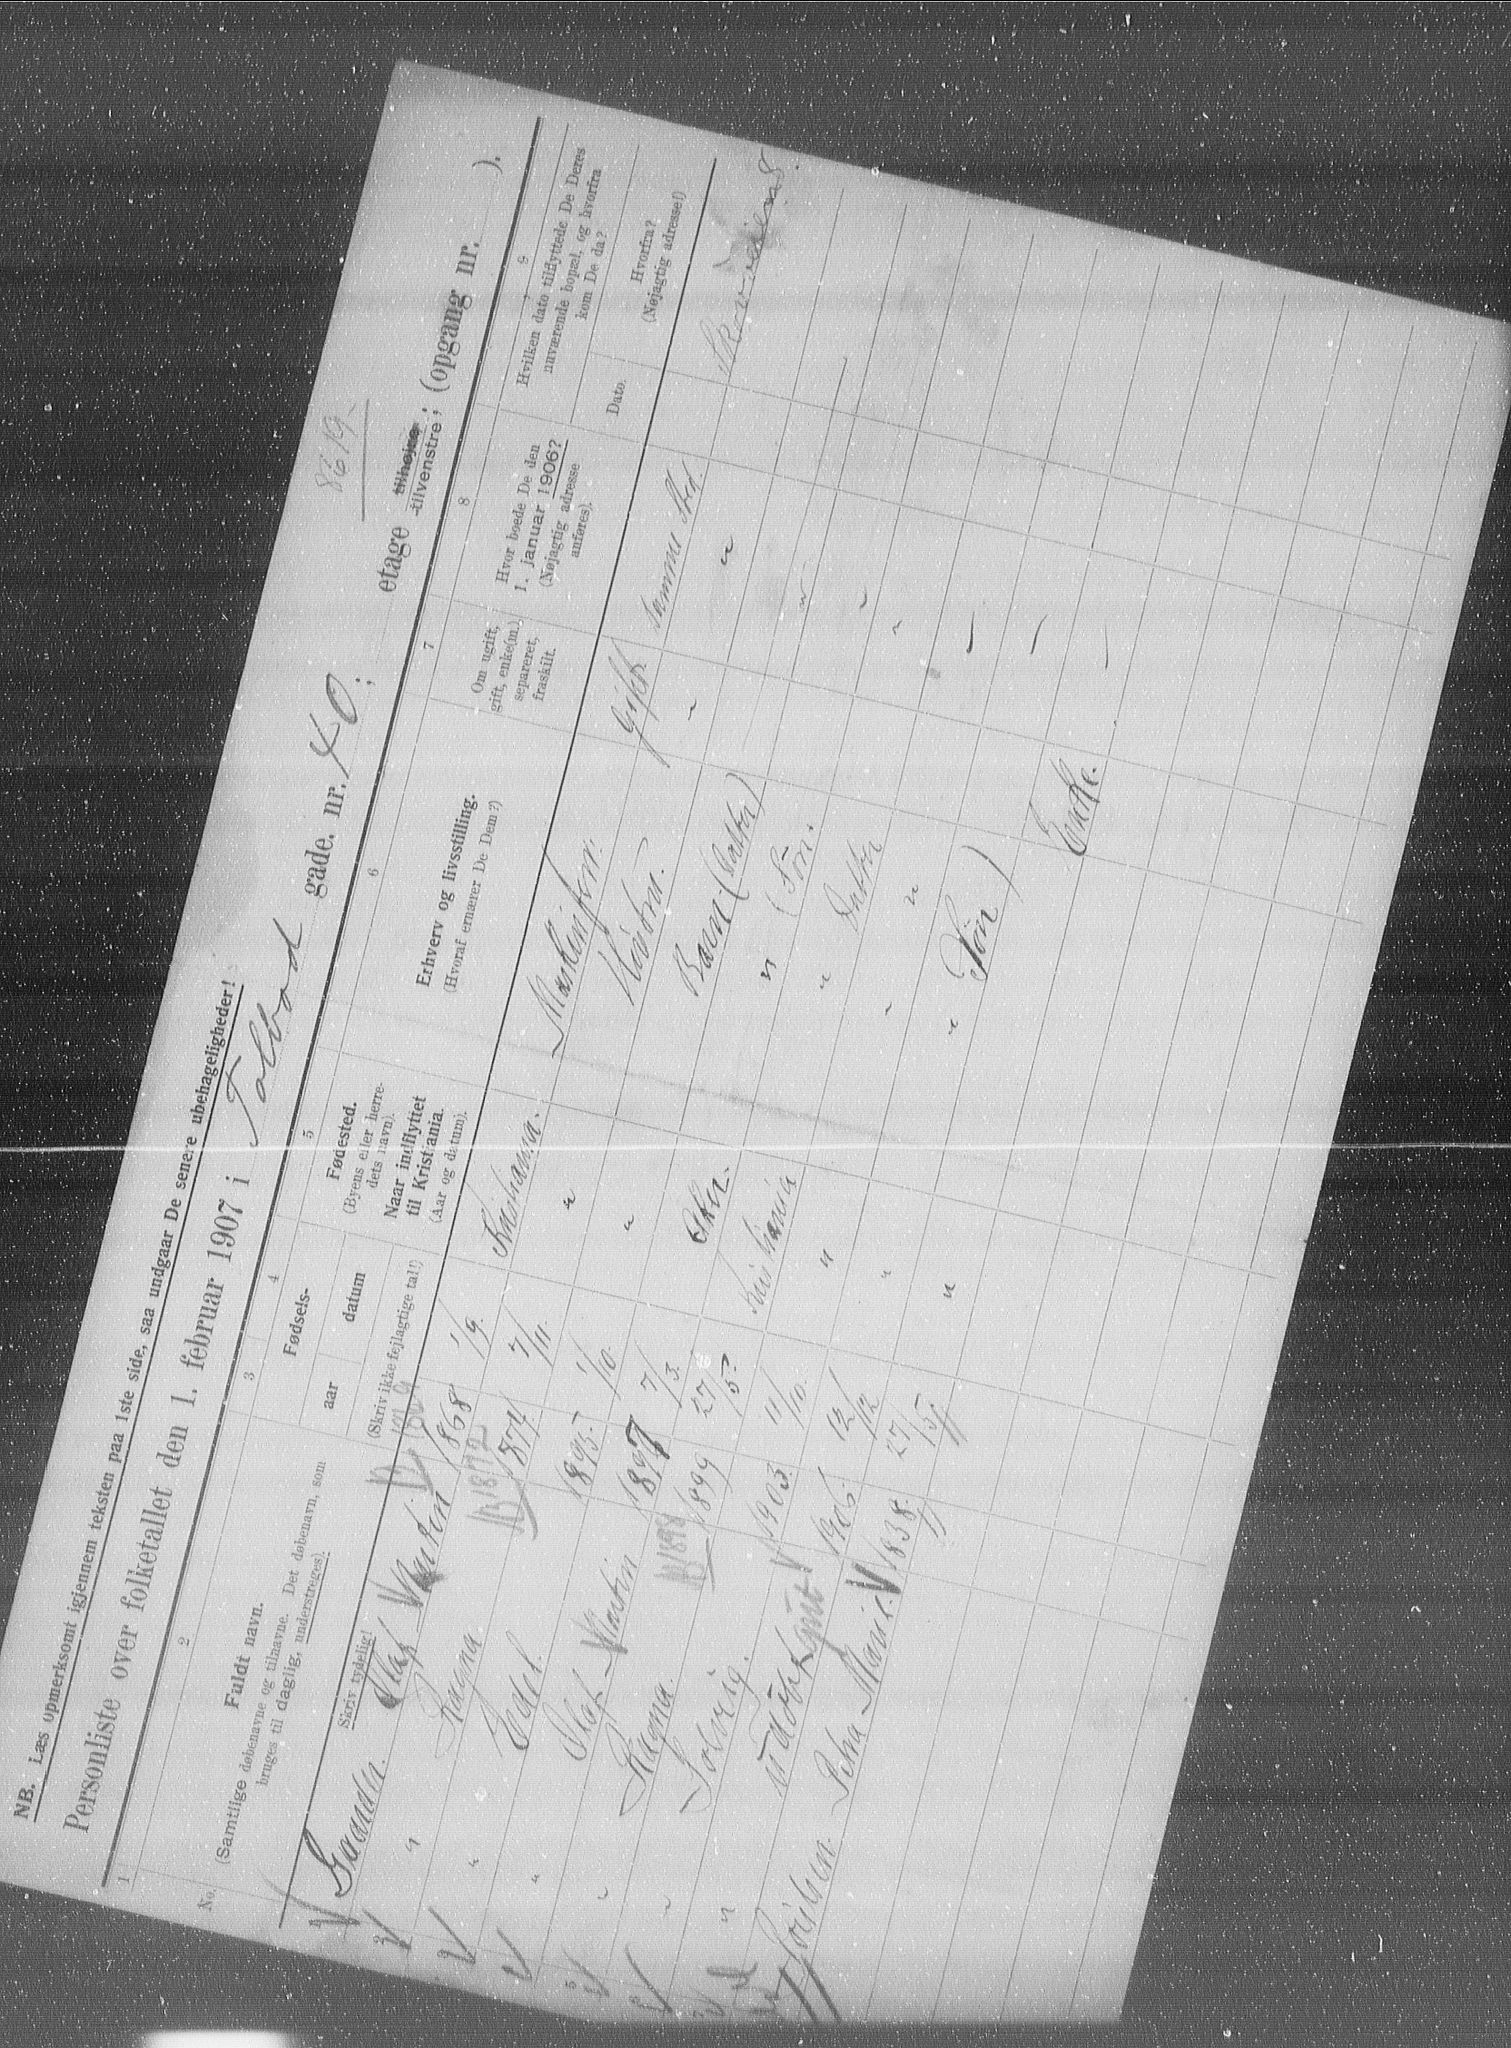 NB. Læs opmerksomt igjennem teksten paa 1ste side, saa undgaar De senere ubehageligheder!
8619
Personliste over folketallet den 1. februar 1907 i Tolbod gade. nr. 40; etage tilhøjre tilvenstre; (opgang nr. ).
1 2 3 4 5 6 7 8 9
No.
Fuldt navn.
(Samtlige døbenavne og tilnavne. Det døbenavn, som
bruges til daglig, understreges).
Skriv tydelig!
Fødsels-
aar datum
(Skriv ikke fejlagtige tal!)
Fødested.
(Byens eller herre-
dets navn).
Naar indflyttet
til Kristiania.
(Aar og datum).
Erhverv og livsstilling.
(Hvoraf ernærer De Dem?)
Om ugift,
gift, enke(m.),
separeret,
fraskilt.
Hvor boede De den
1. januar 1906?
(Nøjagtig adresse
anføres).
Hvilken dato tilflyttede De Deres
nuværende bopæl, og hvorfra
kom De da?
Dato.
Hvorfra?
(Nøjagtig adresse!)
1 Olaf Martin 1868 1/9. Kristiania. Gift. samme sted.
2 " Ragna 1874 7/11. " Hustru. " "
3 " 1895 1/10. " Barn (Datter)
4 " Olaf Martin 1897 7/3. Aker. " (Søn.
5 " Ragna. 1899 27/5. Kristiania " Datter
6 " Solveig. 1903 11/10. " " "
7 " Udøbt gut 1906 12/12 " " Søn)
Petra Marie. 1838. 27/5 " Enke.